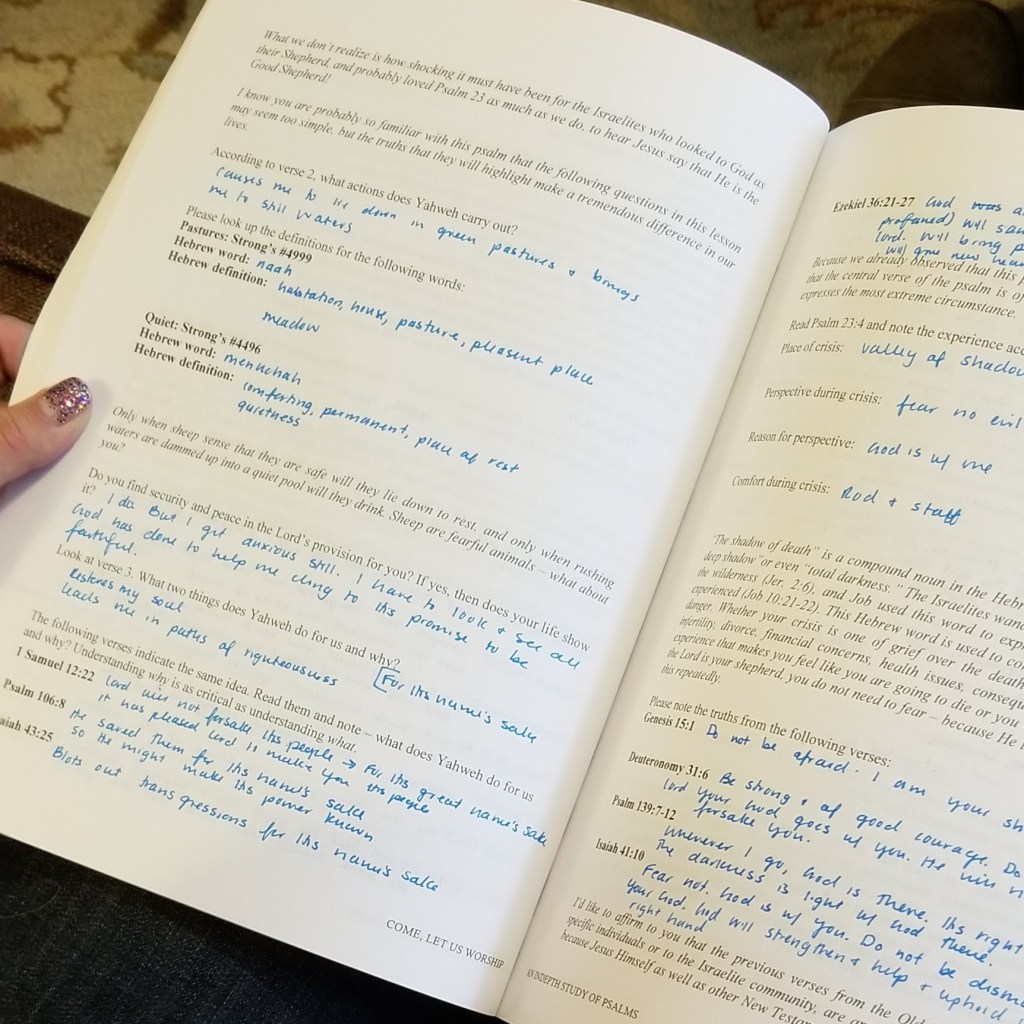 What we don't realize is how shocking it must have been for the Israelites who looked to God as
their Shepherd, and probably loved Psalm 23 as much as we do, to hear Jesus say that He is the
Good Shepherd!
I know you are probably so familiar with this psalm that the following questions in this lesson
may seem too simple, but the truths that they will highlight make a tremendous difference in our
lives.
According to verse 2, what actions does Yahweh carry out?
causes me to lie down in green pastures & brings
me to still waters
Please look up the definitions for the following words:
Pastures: Strong's #4999
Hebrew word: naah
Hebrew definition: habitation, house, pasture, pleasent place
meadow
Quiet: Strong's #4496
Hebrew word: menuchah
Hebrew definition: comforting, permanent, place of rest
quietness
Only when sheep sense that they are safe will they lie down to rest, and only when rushing
waters are dammed up into a quiet pool will they drink. Sheep are fearful animals – what about
you?
Do you find security and peace in the Lord's provision for you? If yes, then does your life show
it? I do. But I get anxious still. I have to look & see all
God has done to help me cling to His promise to be
faithful.
Look at verse 3. What two things does Yahweh do for us and why?
Restores my soul
leads me in paths of righteousness [For His name's sake
The following verses indicate the same idea. Read them and note – what does Yahweh do for us
and why? Understanding why is as critical as understanding what.
1 Samuel 12:22 Lord will not forsake His people → For His great name's sake
it has pleased Lord to make you His people
Psalm 106:8 He saved them for His name's sake
so He might make His power known
aiah 43:25 Blots out transgressions for His name's sake
COME, LET US WORSHIP
Ezekiel 36:21-27 God was
profaned) will
Lord. Will bring
will give new
Because we already observed that this
that the central verse of the psalm is
expresses the most extreme circumstance.
Read Psalm 23:4 and note the experience
Place of crisis: valley of
Perspective during crisis: fear no evil
Reason for perspective: God is w/ me
Comfort during crisis: Rod & staff
"The shadow of death" is a compound noun in the
deep shadow" or even "total darkness." The Israelites
the wilderness (Jer. 2:6), and Job used this word to
experienced (Job 10:21-22). This Hebrew word is used to
danger. Whether your crisis is one of grief over the
infertility, divorce, financial concerns, health issues,
experience that makes you feel like you are going to die or you
the Lord is your shepherd, you do not need to fear – because He
this repeatedly.
Please note the truths from the following verses:
Genesis 15:1 Do not be afraid. I am your
Deuteronomy 31:6 Be strong & of good courage. Do
Lord your God goes w/ you. He will
forsake you.
Psalm 139:7-12 Whenever I go, God is there. His right
The darkness is light w/ God there.
Isaiah 41:10 Fear not. God is w/ you. Do not be
your God, God will strengthen & help & uphold
right hand
I'd like to affirm to you that the previous verses from the
specific individuals or to the Israelite community, are
because Jesus Himself as well as other New
AN INDEPTH STUDY OF PSALMS